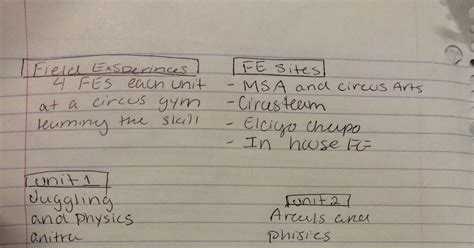 Field Exsperinces
4 FES each unit
at a circus gym
learning the skill
FE Sites
- MSA and circus Arts
- Circusteam
- Elciyo chupo
- In house FE
unit 1
Juggling
and physics
anitra
unit 2
Arauls and
phisics